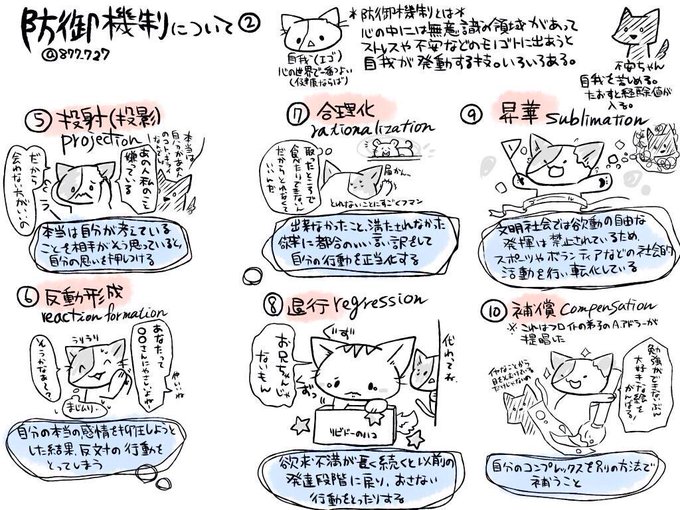 防御機制について②
@877.727
自我(エゴ)
心の世界で一番つよい
(健康ならば)
*防御機制とは*
心の中には無意識の領域があって
ストレスや不安などのモノゴトに出あうと
自我が発動する技。いろいろある。
不安ちゃん
自我を苦しめる。
たおすと経験値が
入る。
⑤ 投射(投影)
projection
本当は
自分があの人
のこと
あの人私のこと
嫌ってる
だから
会わない方がいいの
本当は自分が考えている
ことを相手がそう思っていると、
自分の思いを押しつける
⑥ 反動形成
reaction formation
うりうり
あなたって
〇〇さんにやさしいよね
そうかなあ?
まじムリ
自分の本当の感情を抑圧しようと
した結果、反対の行動を
とってしまう
⑦ 合理化
rationalization
取ったところで
食べたりできないし
だからとれなくて
いいもん
届かん
とれないことにすごくフマン
出来なかったこと、満たされなかった
欲求に都合のいい言い訳をして
自分の行動を正当化する
⑧ 退行 regression
代わってね
お兄ちゃんじゃ
ないもん
リビドーのハコ
欲求不満が長く続くと以前の
発達段階に戻り、おさない
行動をとったりする
⑨ 昇華 sublimation
文明社会では欲動の自由な
発揮は禁止されているため、
スポーツやボランティアなどの社会的
活動を行い、転化している
⑩ 補償 compensation
※これはフロイトの弟子のA.アドラーが
提唱した
勉強ができないぶん
大好きな歌を
がんばる!
自分のコンプレックスを別の方法で
補うこと